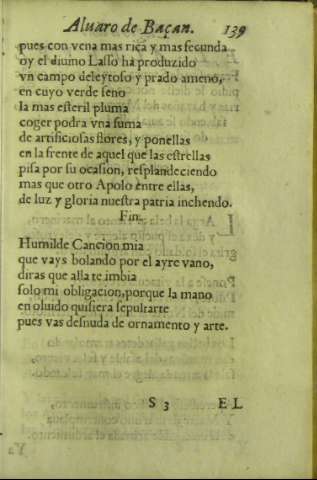 Aluaro de Baçan. 139
pues con vena mas rica y mas fecunda
oy el diuino Lasso ha produzido
vn campo deleytoso y prado ameno,
en cuyo verde seno
la mas esteril pluma
coger podra vna suma
de artificiosas flores, y ponellas
en la frente de aquel que las estrellas
pisa por su ocasion, resplandeciendo
mas que otro Apolo entre ellas,
de luz y gloria nuestra patria inchendo.
Fin.
Humilde Cancion mia
que vays bolando por el ayre vano,
diras que alla te imbia
solo mi obligacion, porque la mano
en oluido quisiera sepultarte
pues vas desnuda de ornamento y arte.
S 3 EL